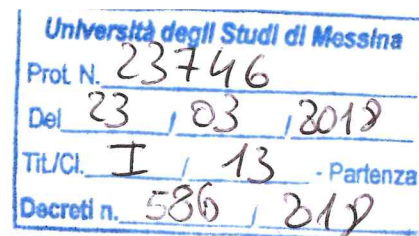 Università degli Studi di Messina
Prot. N. 23746
Del 23 / 03 / 2018
Tit./Cl. I / 13 - Partenza
Decreti n. 586 / 2018